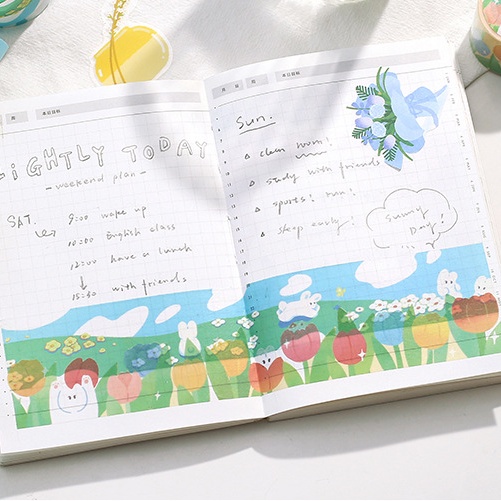 LIGHTLY TODAY
- weekend plan -
SAT.
9:00 wake up
10:00 English class
12:00 have a lunch
15:30 with friends
Sun.
clean room!
study with friends
sports! run!
sleep early!
Sunny
Day!